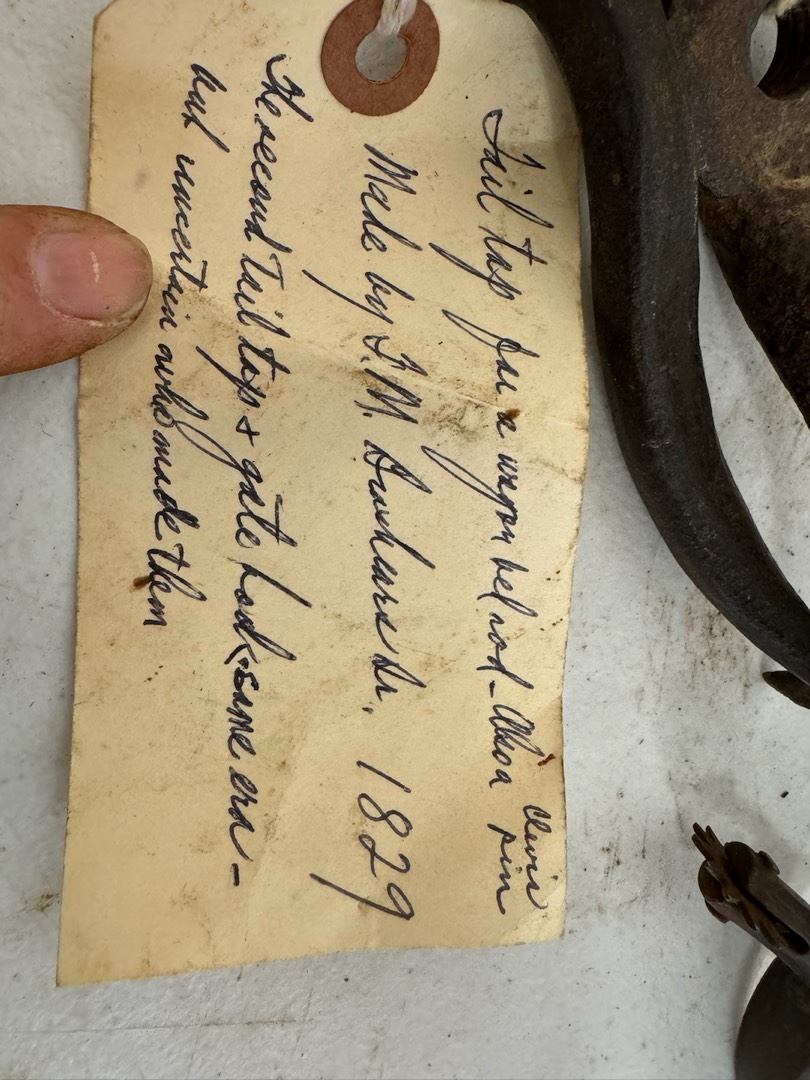 Tail top for a wagon bed rod - Also a clevis pin
Made by J. M. Sr. 1829
The second Tail top + gate hook same era -
but uncertain who made them